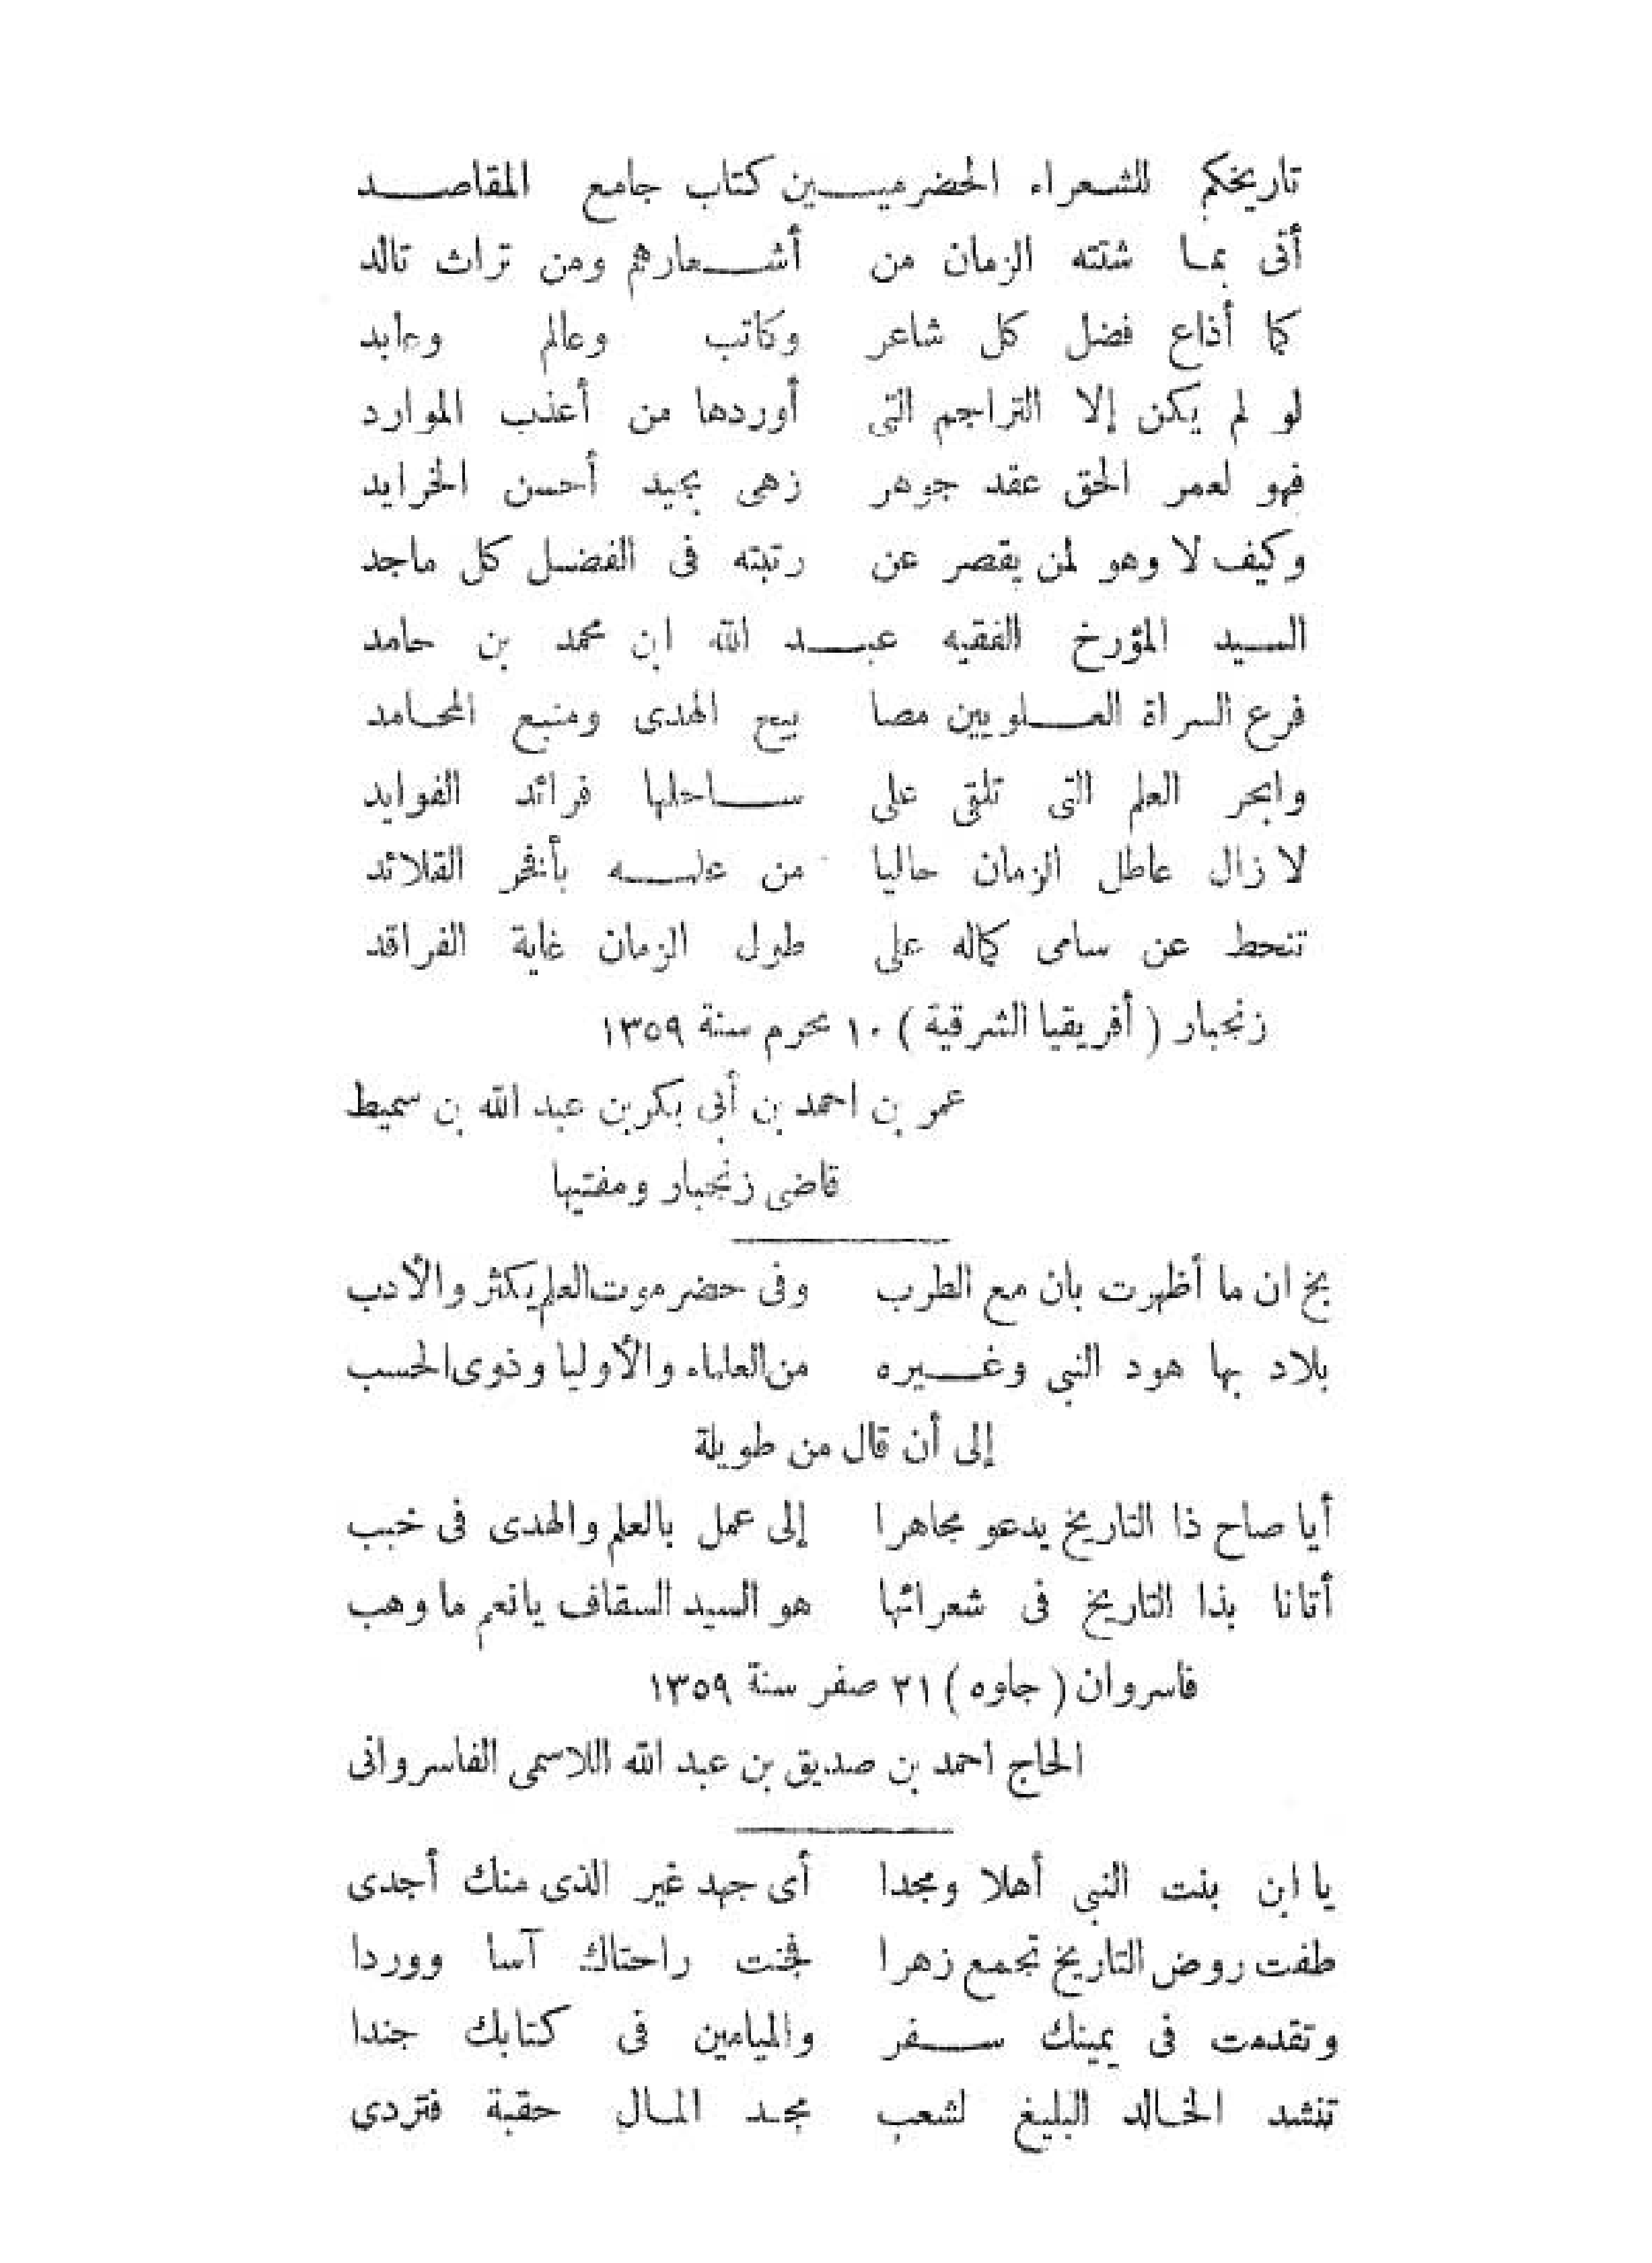 تاريخكم للشعراء الحضرميين كتاب جامع المقاصد
أتى بما شتته الزمان من أشعارهم ومن تراث تالد
كما أذاع فضل كل شاعر وكاتب وعالم وعابد
لو لم يكن إلا التراجم التى أوردها من أعذب الموارد
فهو لعمر الحق عقد جوهر زهى بجيد أحسن الخرايد
وكيف لا وهو لمن يقصر عن رتبته فى الفضل كل ماجد
السيد المؤرخ الفقيه عبد الله ابن محمد بن حامد
فرع السراة العلويين مصا بيح الهدى ومنبع المحامد
وابحر العلم التى تلقى على ساحلها فرائد الفوايد
لا زال عاطل الزمان حاليا من علمه بأفخر القلائد
تنحط عن سامى كماله على طول الزمان غاية الفراقد
زنجبار ( أفريقيا الشرقية ) ١٠ محرم سنة ١٣٥٩
عمر بن احمد بن أبى بكر بن عبد الله بن سميط
قاضى زنجبار ومفتيها
بخ ان ما أظهرت بان مع الطرب وفى حضرموت العلم يكثر والأدب
بلاد بها هود النبى وغيره من العلماء والأوليا وذوى الحسب
إلى أن قال من طويلة
أيا صاح ذا التاريخ يدعو مجاهرا إلى عمل بالعلم والهدى فى خبب
أتانا بذا التاريخ فى شعرائها هو السيد السقاف يانعم ما وهب
فاسروان ( جاوه ) ٢١ صفر سنة ١٣٥٩
الحاج احمد بن صديق بن عبد الله اللاسمى الفاسروانى
يا ابن بنت النبى أهلا ومجدا أى جهد غير الذى منك أجدى
طفت روض التاريخ تجمع زهرا فجنت راحتاك آسا ووردا
وتقدمت فى يمينك سفر والميامين فى كتابك جندا
تنشد الخالد البليغ لشعب مجد المال حقبة فتردى